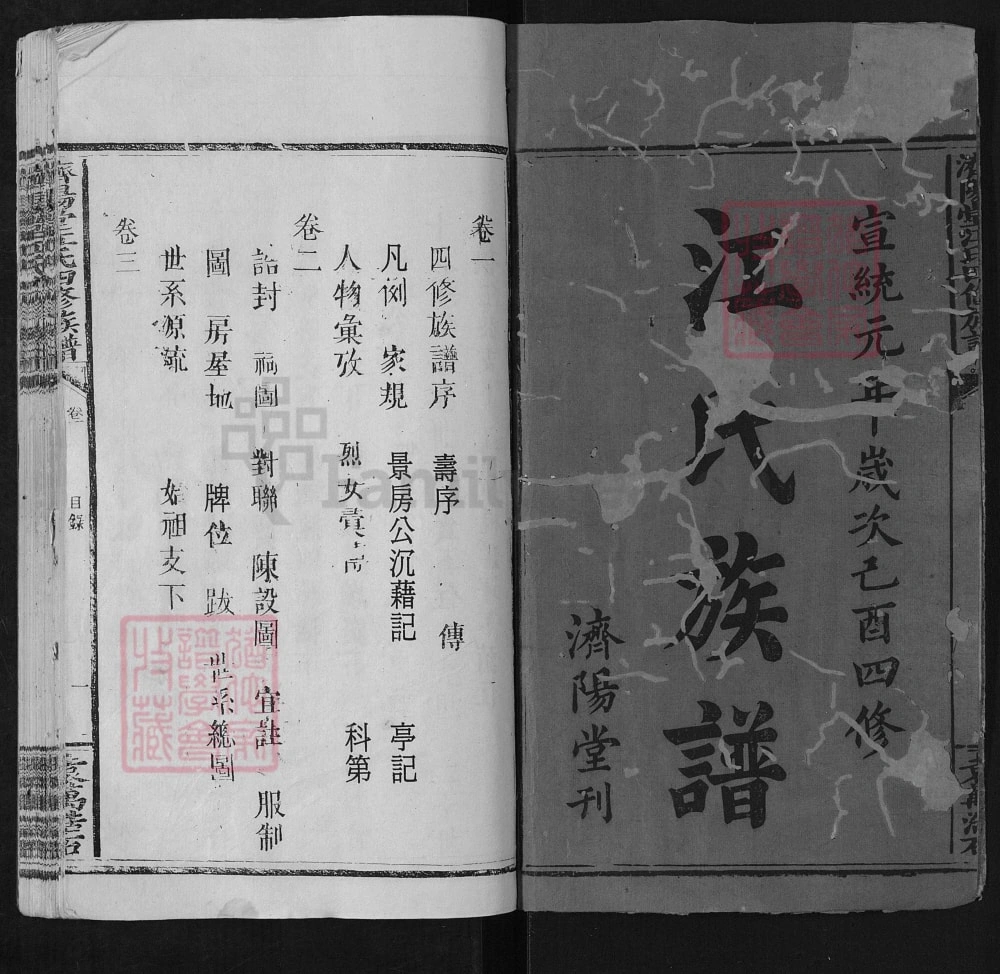 宣統元年歲次己酉四修
江氏族譜
濟陽堂刊
卷一
四修族譜序 壽序 傳
凡例 家規 景房公沉藉記 亭記
人物彙攷 烈女 科第
卷二
誥封 祠圖 對聯 陳設圖 宣註 服制
圖 房屋地 牌位 跋 世系總圖
卷三
世系源流 始祖支下
濟陽堂江氏四修族譜
卷一
目錄
一